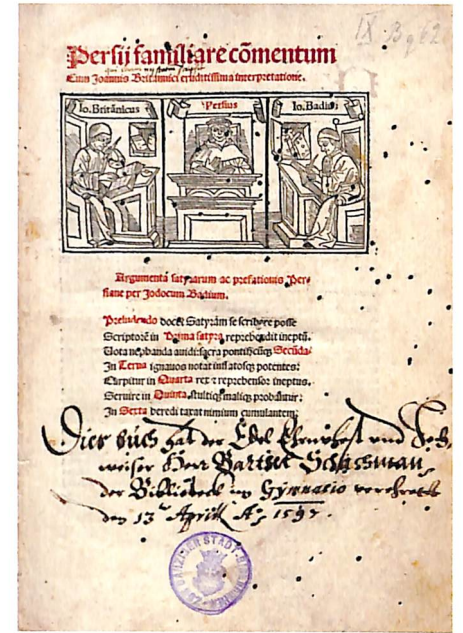 IX. B q 62.
Persij familiare cōmentum
Cum Joannis Britannici eruditissima interpretatione.
Io. Britānicus
Persius
Io. Badiꝰ
Argumenta satyrarum ac prefationis Per-
siane per Jodocum Badium.
Preludendo docet Satyrām se scribere posse
Scriptorē in Prima satyra reprehendit ineptū.
Vota nephanda auidi sacra pontificūqꝫ Secūda.
In Tertia ignauos notat inflatosqꝫ potentes:
Carpitur in Quarta rex ⁊ reprehensor ineptus.
Seruire in Quinta stultiqꝫ maliqꝫ probantur:
In Sexta heredi taxat nimium cumulantem:
Dies buch hat der Edel Ehrnvhest und
weiser Herr Bartelt Schachman
der Bibliotheck im Gymnasio verehrett
den 13 Aprill Aº 1597.
DANZIGER STADT